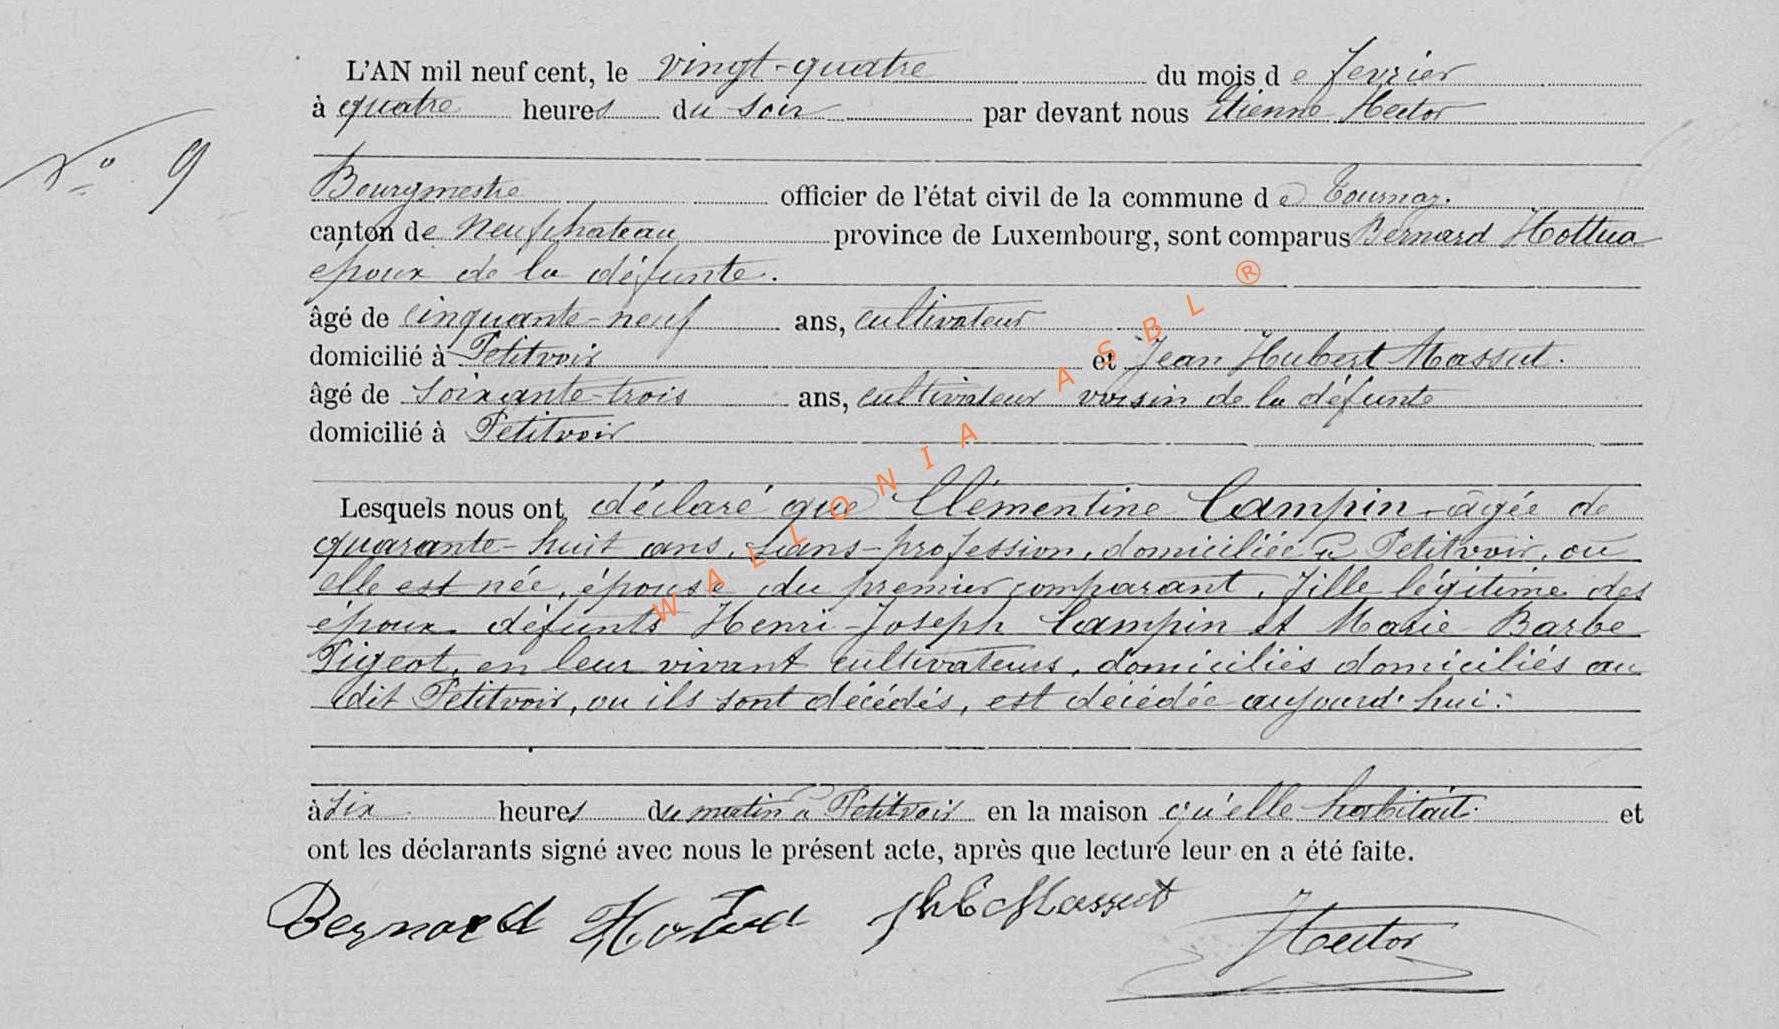 L'AN mil neuf cent, le vingt-quatre du mois de février
à quatre heures du soir par devant nous Etienne Hector
N° 9
Bourgmestre officier de l'état civil de la commune de Tournay.
canton de Neufchateau province de Luxembourg, sont comparus Bernard Hottua
époux de la défunte.
âgé de cinquante-neuf ans, cultivateur
domicilié à Petitvoir et Jean Hubert Massut.
âgé de soixante-trois ans, cultivateur voisin de la défunte
domicilié à Petitvoir
Lesquels nous ont déclaré que Clémentine Campin, âgée de
quarante-huit ans, sans-profession, domiciliée à Petitvoir, où
elle est née, épouse du premier comparant, fille légitime des
époux défunts Henri-Joseph Campin et Marie Barbe
Pigeot, en leur vivant cultivateurs, domiciliés domiciliés au
dit Petitvoir, ou ils sont décédés, est décédée aujourd'hui:
à six heures du matin à Petitvoir en la maison qu'elle habitait. et
ont les déclarants signé avec nous le présent acte, après que lecture leur en a été faite.
Bernard Hotud Massut
Hector
WALLONIA ASBL ®